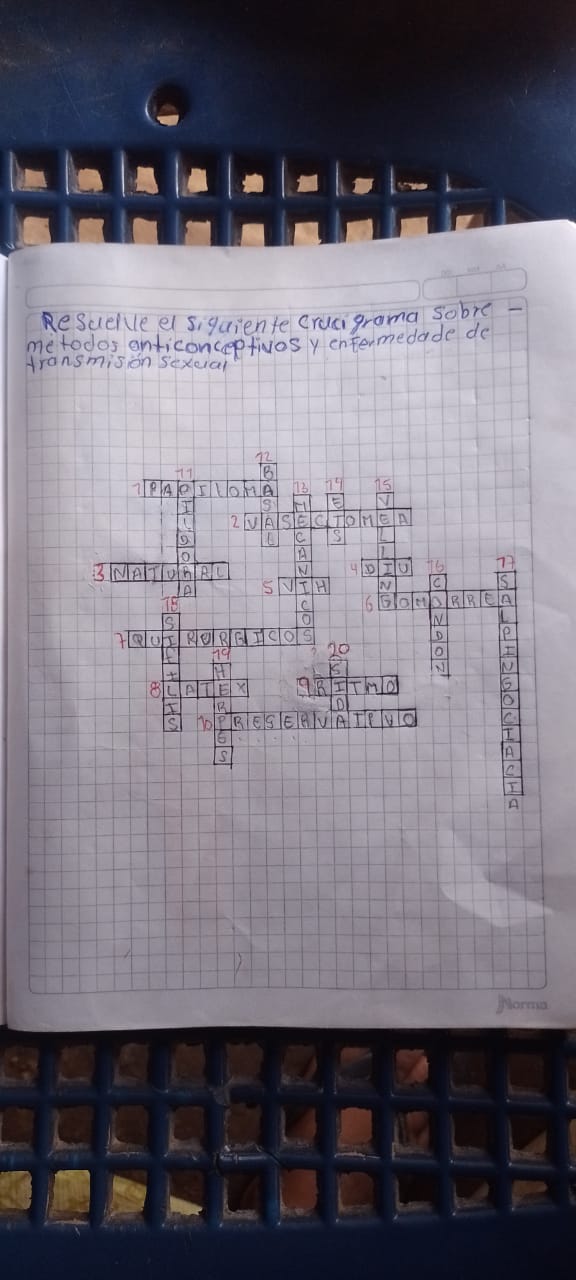 Resuelve el siguiente crucigrama sobre -
metodos anticonceptivos y enfermedade de
transmisión sexual
12
11
B
1 PAPILOMA
13 14 15
2 VASECTOMEA
3 NATURAL
4 DIU
16
17
5 VIH
6 GOMORREA
18
7 QUIRURGICOS
19
20
8 LATEX
9 RITMO
10 PRESERVATIVO
PILDORA
BASAL
MECANICOS
ETS
CONDON
SALPINGOCIACIA
SIFILIS
HERPES
SIDA
Norma